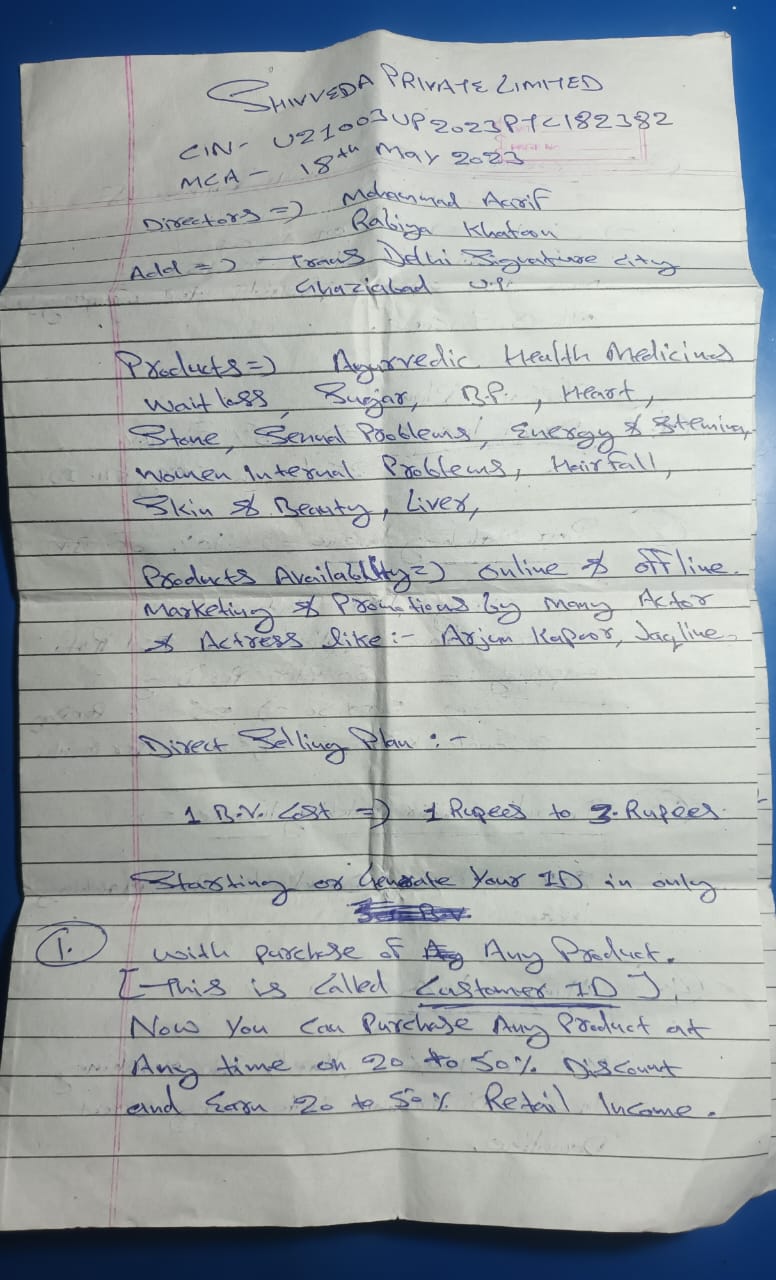 SHIVVEDA PRIVATE LIMITED
CIN- U21003UP2023PTC182382
MCA - 18th May 2023
Directors => Mohammad Aarif
Rabiya Khatoon
Add => Trans Delhi Signature city
Ghaziabad U.P.
Products => Ayurvedic Health Medicines
Wait loss, Sugar, B.P., Heart,
Stone, Sexual Problems, Energy & Stemina,
Women Internal Problems, Hairfall,
Skin & Beauty, Liver,
Products Availability => online & offline.
Marketing & Promotions by Many Actor
& Actress like :- Arjun Kapoor, Jaqline.
Direct Selling Plan :-
1 B.V. Cost => 1 Rupees to 3. Rupees.
Starting or Generate Your ID in only
1. with purchase of Any Product.
[This is Called Customer ID].
Now You Can Purchase Any Product at
Any time on 20 to 50% Discount
and Earn 20 to 50% Retail Income.